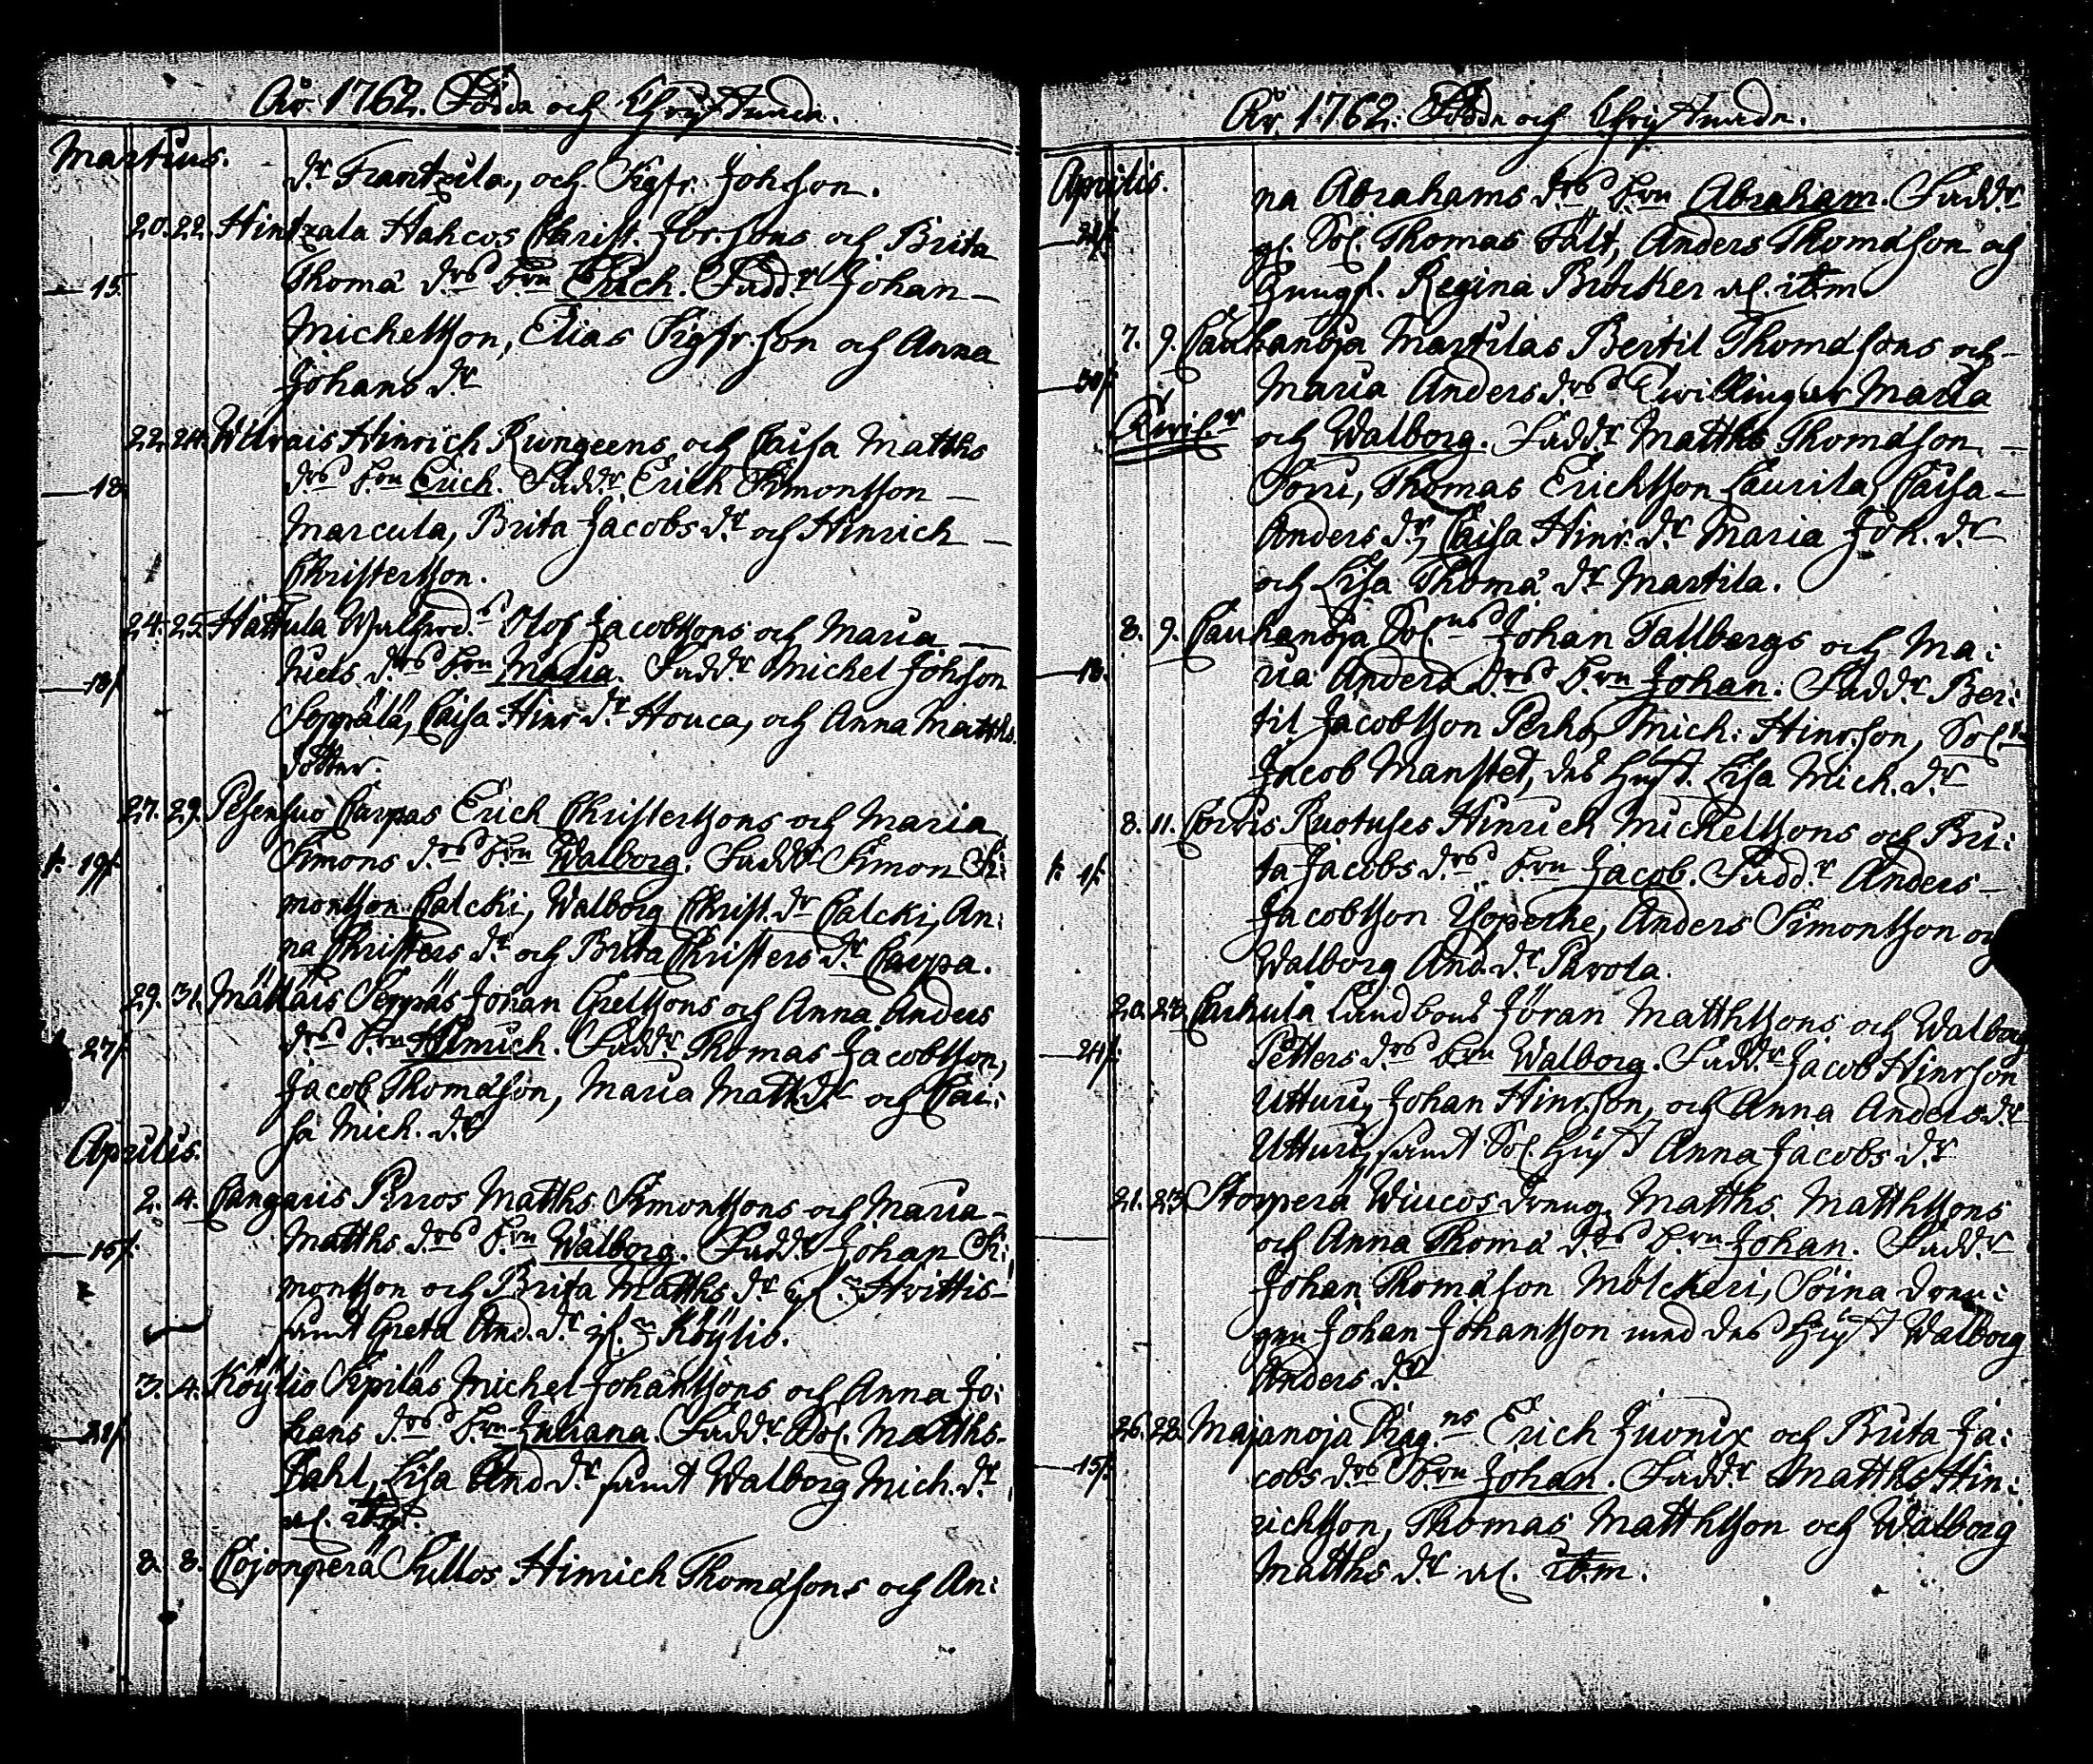 År 1762. Födda och Christnade.
Martius.
dr Frantzila, och Sigfr. Johsson.
20. 22. Hintzala Hahcos Christ. Jör.sons och Brita
15 Thomæ drs b:rn Erich. Fadd:r Johan
Michelsson, Elias Sigfr.son och Anna
Johans dr
22. 24. Wilvais Hinrich Rungeens och Caisa Matths
18 drs b:rn Erich. Fadd:r Erich Simonsson
Marcula, Brita Jacobs dr och Hinrich
Christersson.
24. 25. Hattula Olof Jacobssons och Maria
18/. Niels drs b:rn Maria. Fadd:r Michel Johsson
Seppälä, Caisa Hinr dr Houca, och Anna Matths
dotter.
27. 29. Pesensuo Carpas Erich Christerssons och Maria
19/. Simons drs b:rn Walborg. Fadd:r Simon Si:
monsson Calcki, Walborg Christ. dr Calcki, An:
na Christers dr och Brita Christers dr Carpa.
29. 31. Mällais Seppäs Johan Grelssons och Anna Anders
27/. drs b:rn Hinrich. Fadd:r Thomas Jacobsson,
Jacob Thomæson, Maria Matt dr och Cai:
sa Mich. dr
Aprilis.
2. 4. Cangaris Perros Matths Simonssons och Maria
16/. Matths drs b:rn Walborg. Fadd:r Johan Si:
monsson och Brita Matths dr Hvittis
samt Greta And. dr Köÿliö.
3. 4. Köÿliö Sipilas Michel Johanssons och Anna Jo:
21/. hans drs b:rn Juliana. Fadd:r Sol. Matths
Dahl, Lisa And dr samt Walborg Mich. dr

8. 8. Cojonperä Sillos Hinrich Thomæsons och An:
År 1762. Födda och Christnade.
Aprilis.
na Abrahams drs b:rn Abraham. Fadd:r
Sol. Thomas Fält, Anders Thomæson och
Jungf. Regina Bucker
7. 9. Cauhanoja Martilas Bertil Thomæsons och
30/. Maria Anders drs Twillingar Maria
och Walborg. Fadd:r Matths Thomæson
Soni, Thomas Erichsson Laurila, Caisa
Anders dr, Caisa Hinr. dr Maria Joh. dr
och Lisa Thomæ dr Martila.
8. 9. Cauhanoja Sol:ns Johan Tallbergs och Ma:
18. ria Anders drs b:rn Johan. Fadd:r Ber:
til Jacobsson Perho, Mich: Hinr.son, Sol:n
Jacob Manstet, des Hust. Lisa Mich. dr
8. 11. Corvis Ruotuses Hinrich Michelssons och Bri:
1/. ta Jacobs drs b:rn Jacob. Fadd:r Anders
Jacobsson Yliperhe, Anders Simonsson och
Walborg And. dr Pavola.
20. 22. Carhula Landbons Jöran Matthssons och Walborg
24/. Petters drs b:rn Walborg. Fadd:r Jacob Hinrson
Utturi, Johan Hinr.son, och Anna Anders dr
Utturi, samt Sol. Hust Anna Jacobs dr
21. 23. Storperä Wiucos dreng. Matths Matthssons
och Anna Thomæ drs b:rn Johan. Fadd:r
Johan Thomæson Mölckeri, Söina dren:
gen Johan Johansson med des Hust Walborg
Anders dr
26. 28. Majanoja Erich Juvnix och Brita Ja:
15/. cobs drs b:rn Johan. Fadd:r Matths Hin:
richsson, Thomas Matthsson och Walborg
Matths dr